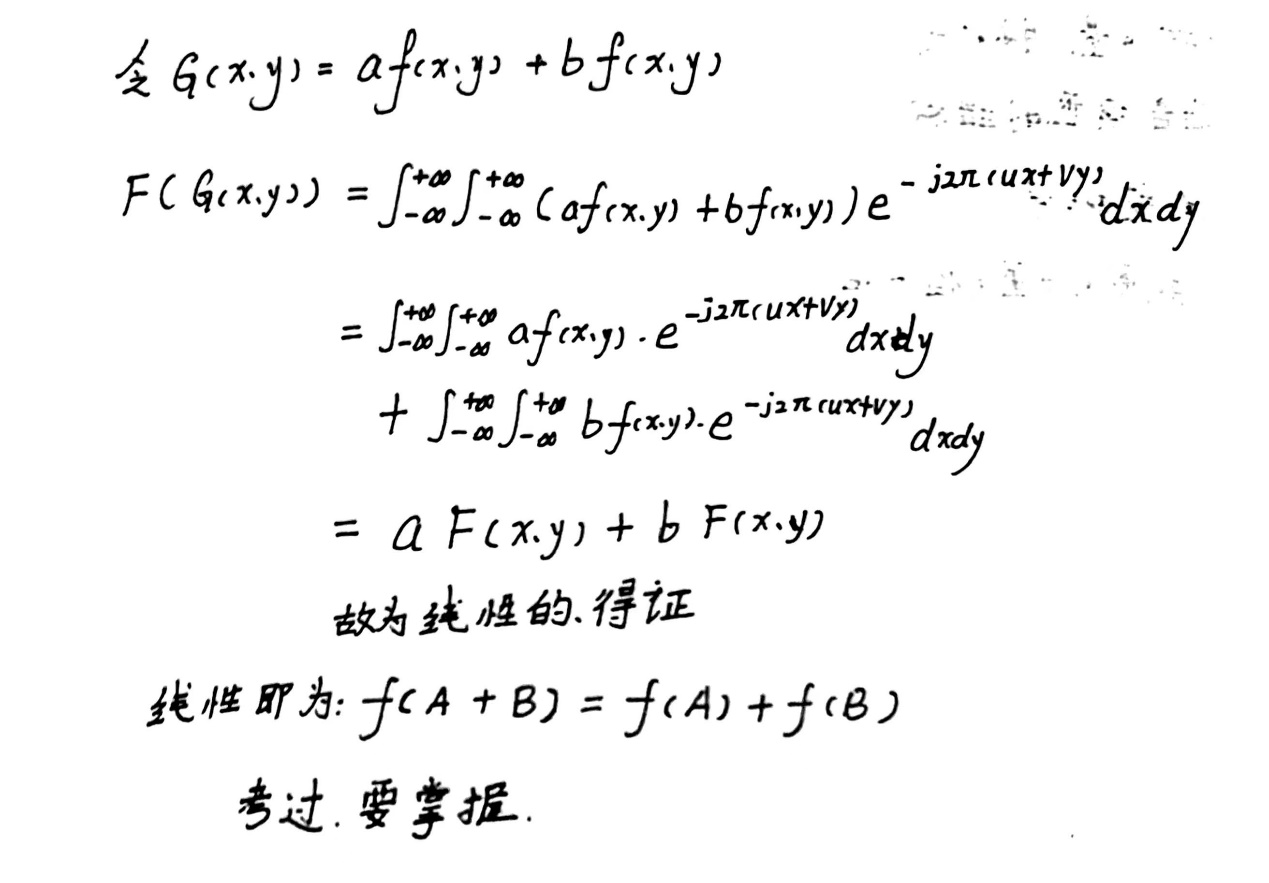 令 G(x.y) = af(x.y) + bf(x.y)
F(G(x.y)) = ∫_{-∞}^{+∞}∫_{-∞}^{+∞}(af(x.y)+bf(x.y))e^{-j2π(ux+vy)}dxdy
= ∫_{-∞}^{+∞}∫_{-∞}^{+∞}af(x.y)·e^{-j2π(ux+vy)}dxdy
+ ∫_{-∞}^{+∞}∫_{-∞}^{+∞}bf(x.y)·e^{-j2π(ux+vy)}dxdy
= a F(x.y) + b F(x.y)
故为线性的.得证
线性即为: f(A + B) = f(A) + f(B)
考过.要掌握.